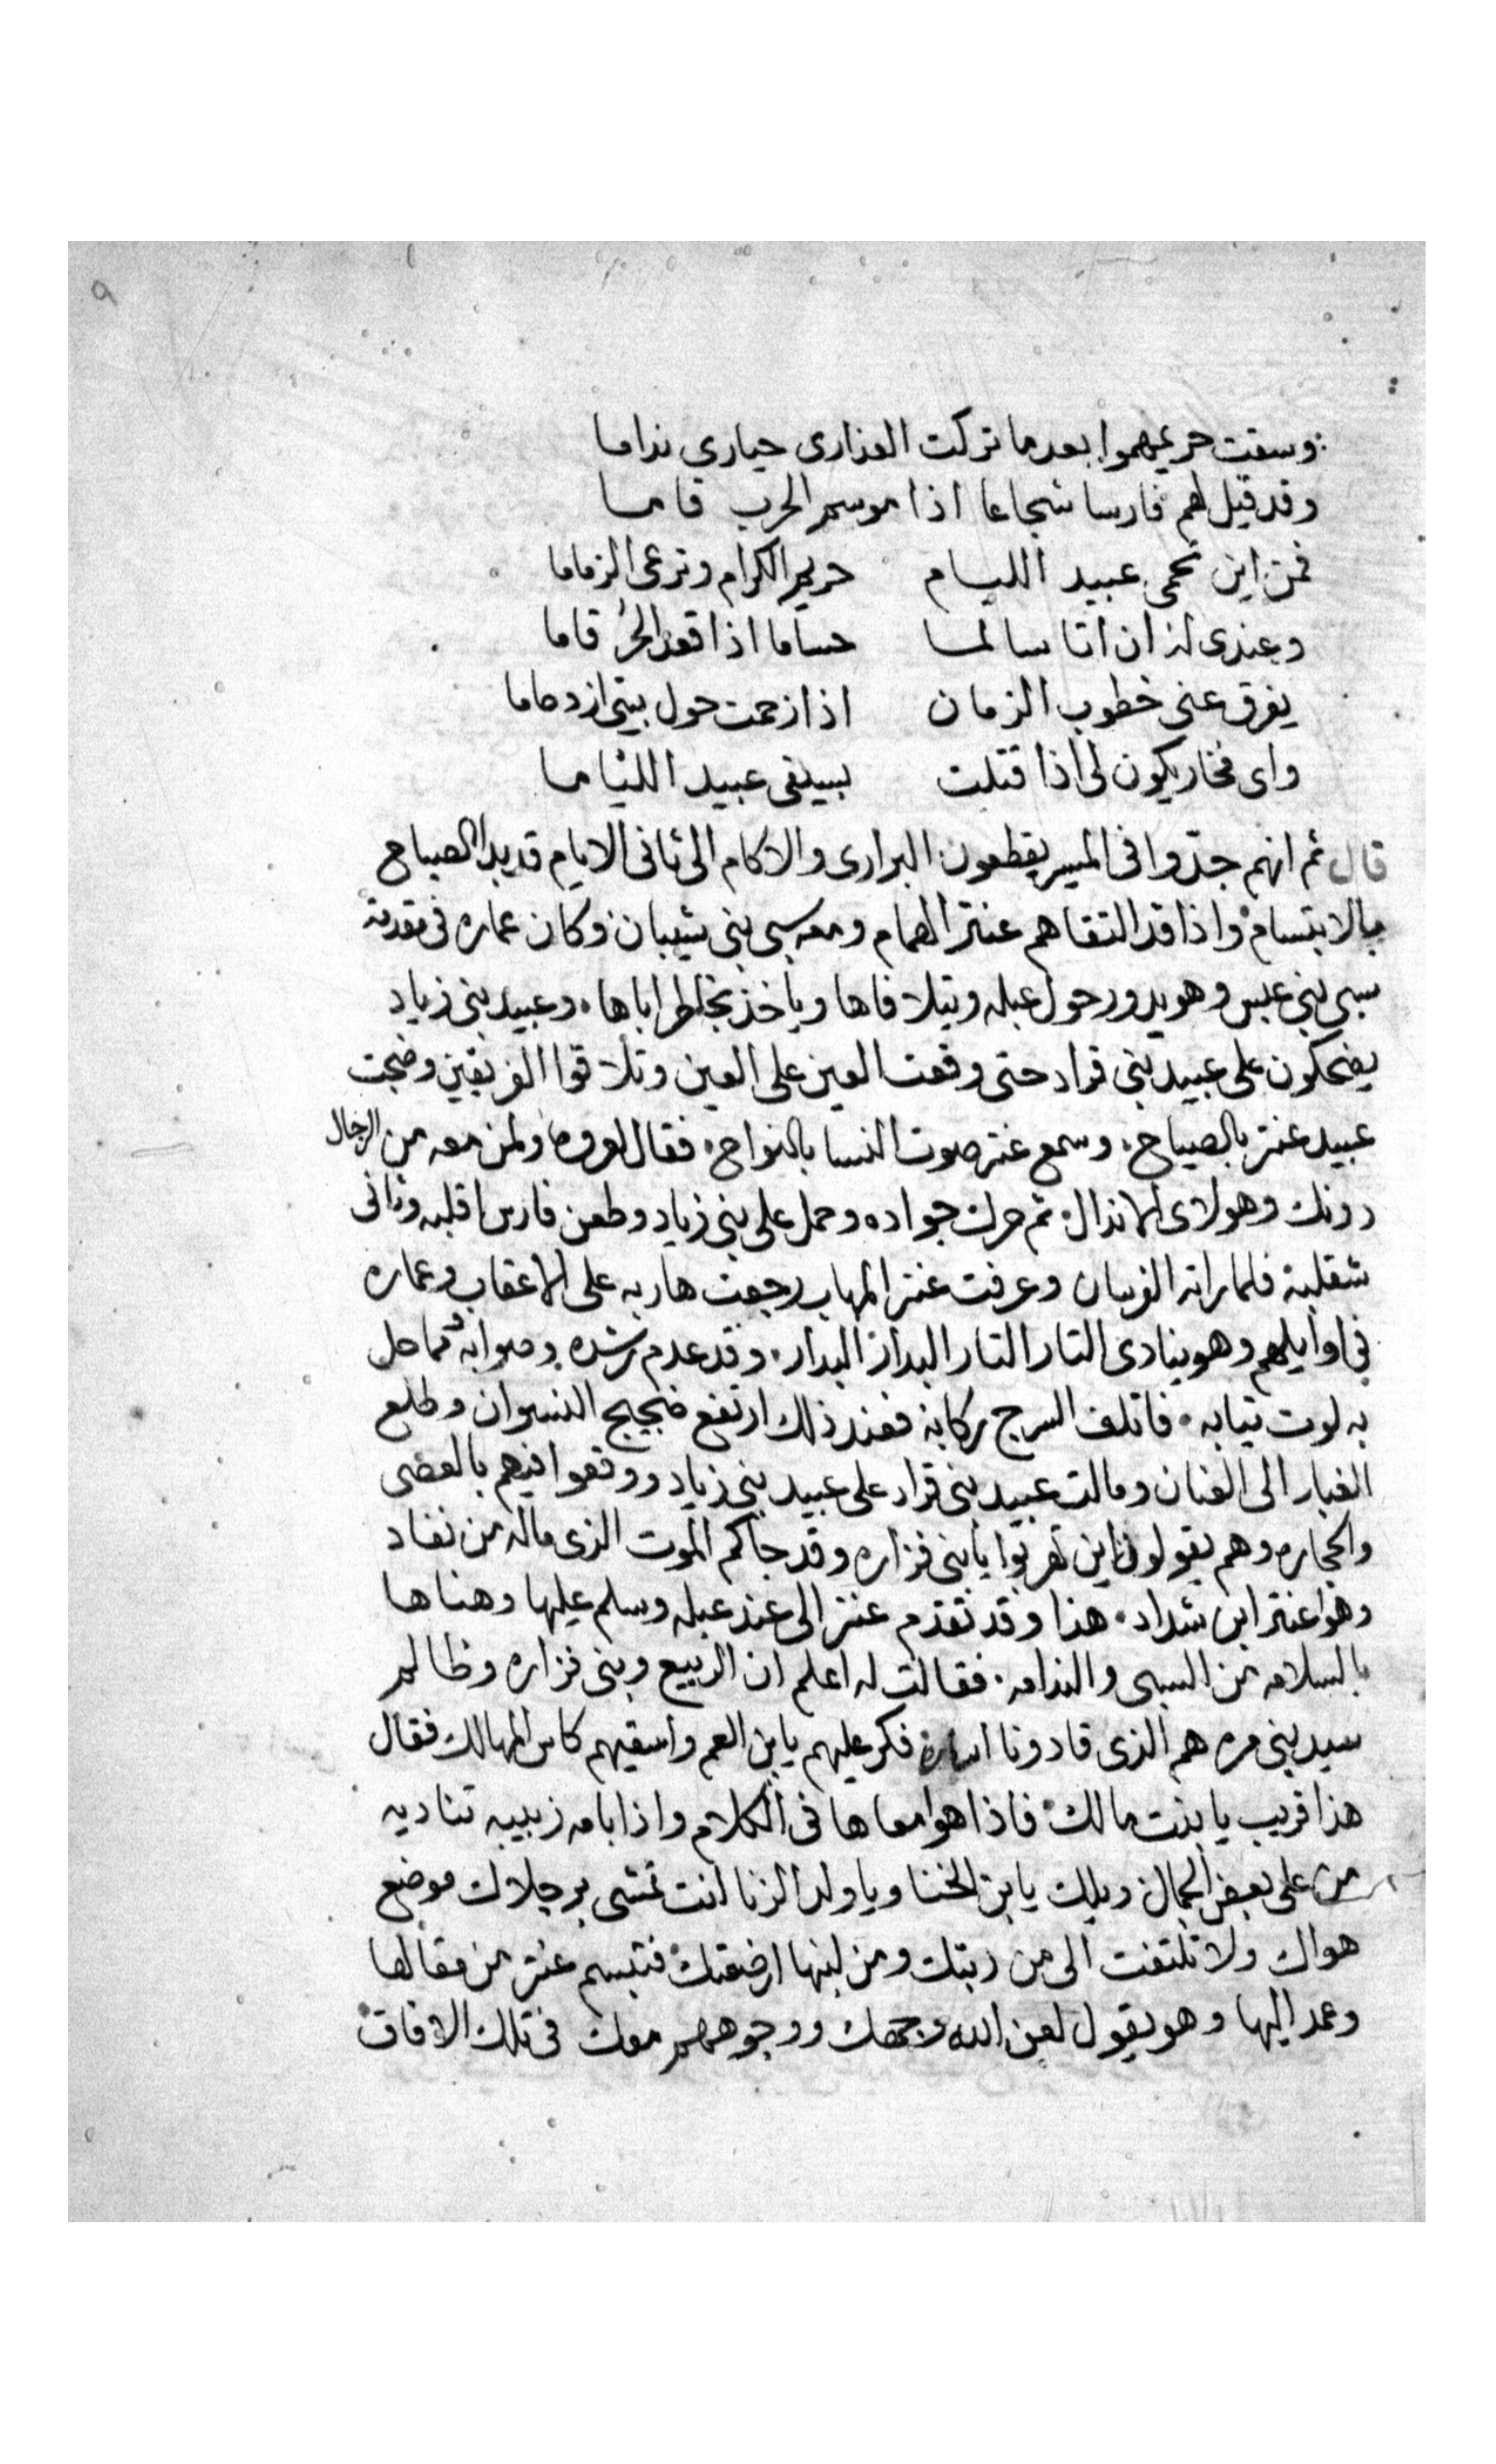 ٩
وسقت حريمهموا بعدما تركت العذارى حيارى نداما
وقد قيل لهم فارسا شجاعا اذا موسم الحرب قامسا
فمن اين تحمى عبيد الليام حريم الكرام وترعى الزماما
وعندى لذ ان اتا سالمسا حساما اذا قعد الحر قاما
يفرق عنى خطوب الزمان اذا زحمت حول بيتى ازدحاما
واى فخار يكون لى اذا قتلت بسيفى عبيد اللئاما
قال ثم انهم جدوا فى المسير يقطعون البرارى والاكام الى ثانى الايام قد بدا الصباح
بالابتسام واذا قد التقاهم عنتر الهمام ومعه سبى بنى شيبان وكان عماره فى مقدمة
سبى بنى عبس وهو يدور حول عبله ويتلافاها وياخذ بخاطر اباها وعبيد بنى زياد
يضحكون على عبيد بنى قراد حتى وقعت العين على العين وتلاقوا الفريقين وضجت
عبيد عنتر بالصياح وسمع عنتر صوت النسا بالنواح فقال لعروه ولمن معه من الرجال
دونك وهولاى الانذال ثم حرك جواده وحمل على بنى زياد وطعن فارس اقلبه وثانى
شقلبة فلما راته الفرسان وعرفت عنتر المهاب رجعت هاربه على الاعقاب وعماره
فى اوايلهم وهو ينادى التار التار البدار البدار وقد عدم رشده وصوابه ومما حل
به لوت تيابه فاتلف السرج ركابه فعند ذلك ارتفع ضجيج النسوان وطلع
الغبار الى العنان ومالت عبيد بنى قراد على عبيد بنى زياد ووقعوا فيهم بالعصى
والحجاره وهم يقولون اين تهربوا يا بنى فزاره وقد جاكم الموت الذى ماله من نفاد
وهو عنتر ابن شداد هذا وقد تقدم عنتر الى عند عبله وسلم عليها وهناها
بالسلامه من السبى والندامه فقالت له اعلم ان الربيع وبنى فزاره وظالم
سيد بنى مره هم الذى قادونا فكر عليهم يابن العم واسقيهم كاس المهالك فقال
هذا قريب يا بنت مالك فاذا هوا معاها فى الكلام واذا بامه زبيبه تناديه
من على بعض الجمال ويلك يابن الخنا ويا ولد الزنا انت تمشى برجلاك موضع
هواك ولا تلتفت الى من ربتك ومن لبنها ارضعتك فتبسم عنتر من مقالها
وعمد اليها وهو يقول لعن الله وجهك ووجوههم معك فى تلك الافاق